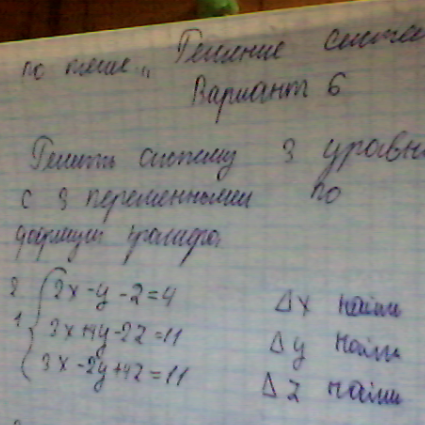 по теме „ Решение систем
Вариант 6
Решить систему 3 уравн
с 3 переменными по
формуле крамера
2x-y-z=4 Δx найти
1 3x+4y-2z=11 Δy найти
3x-2y+4z=11 Δz найти